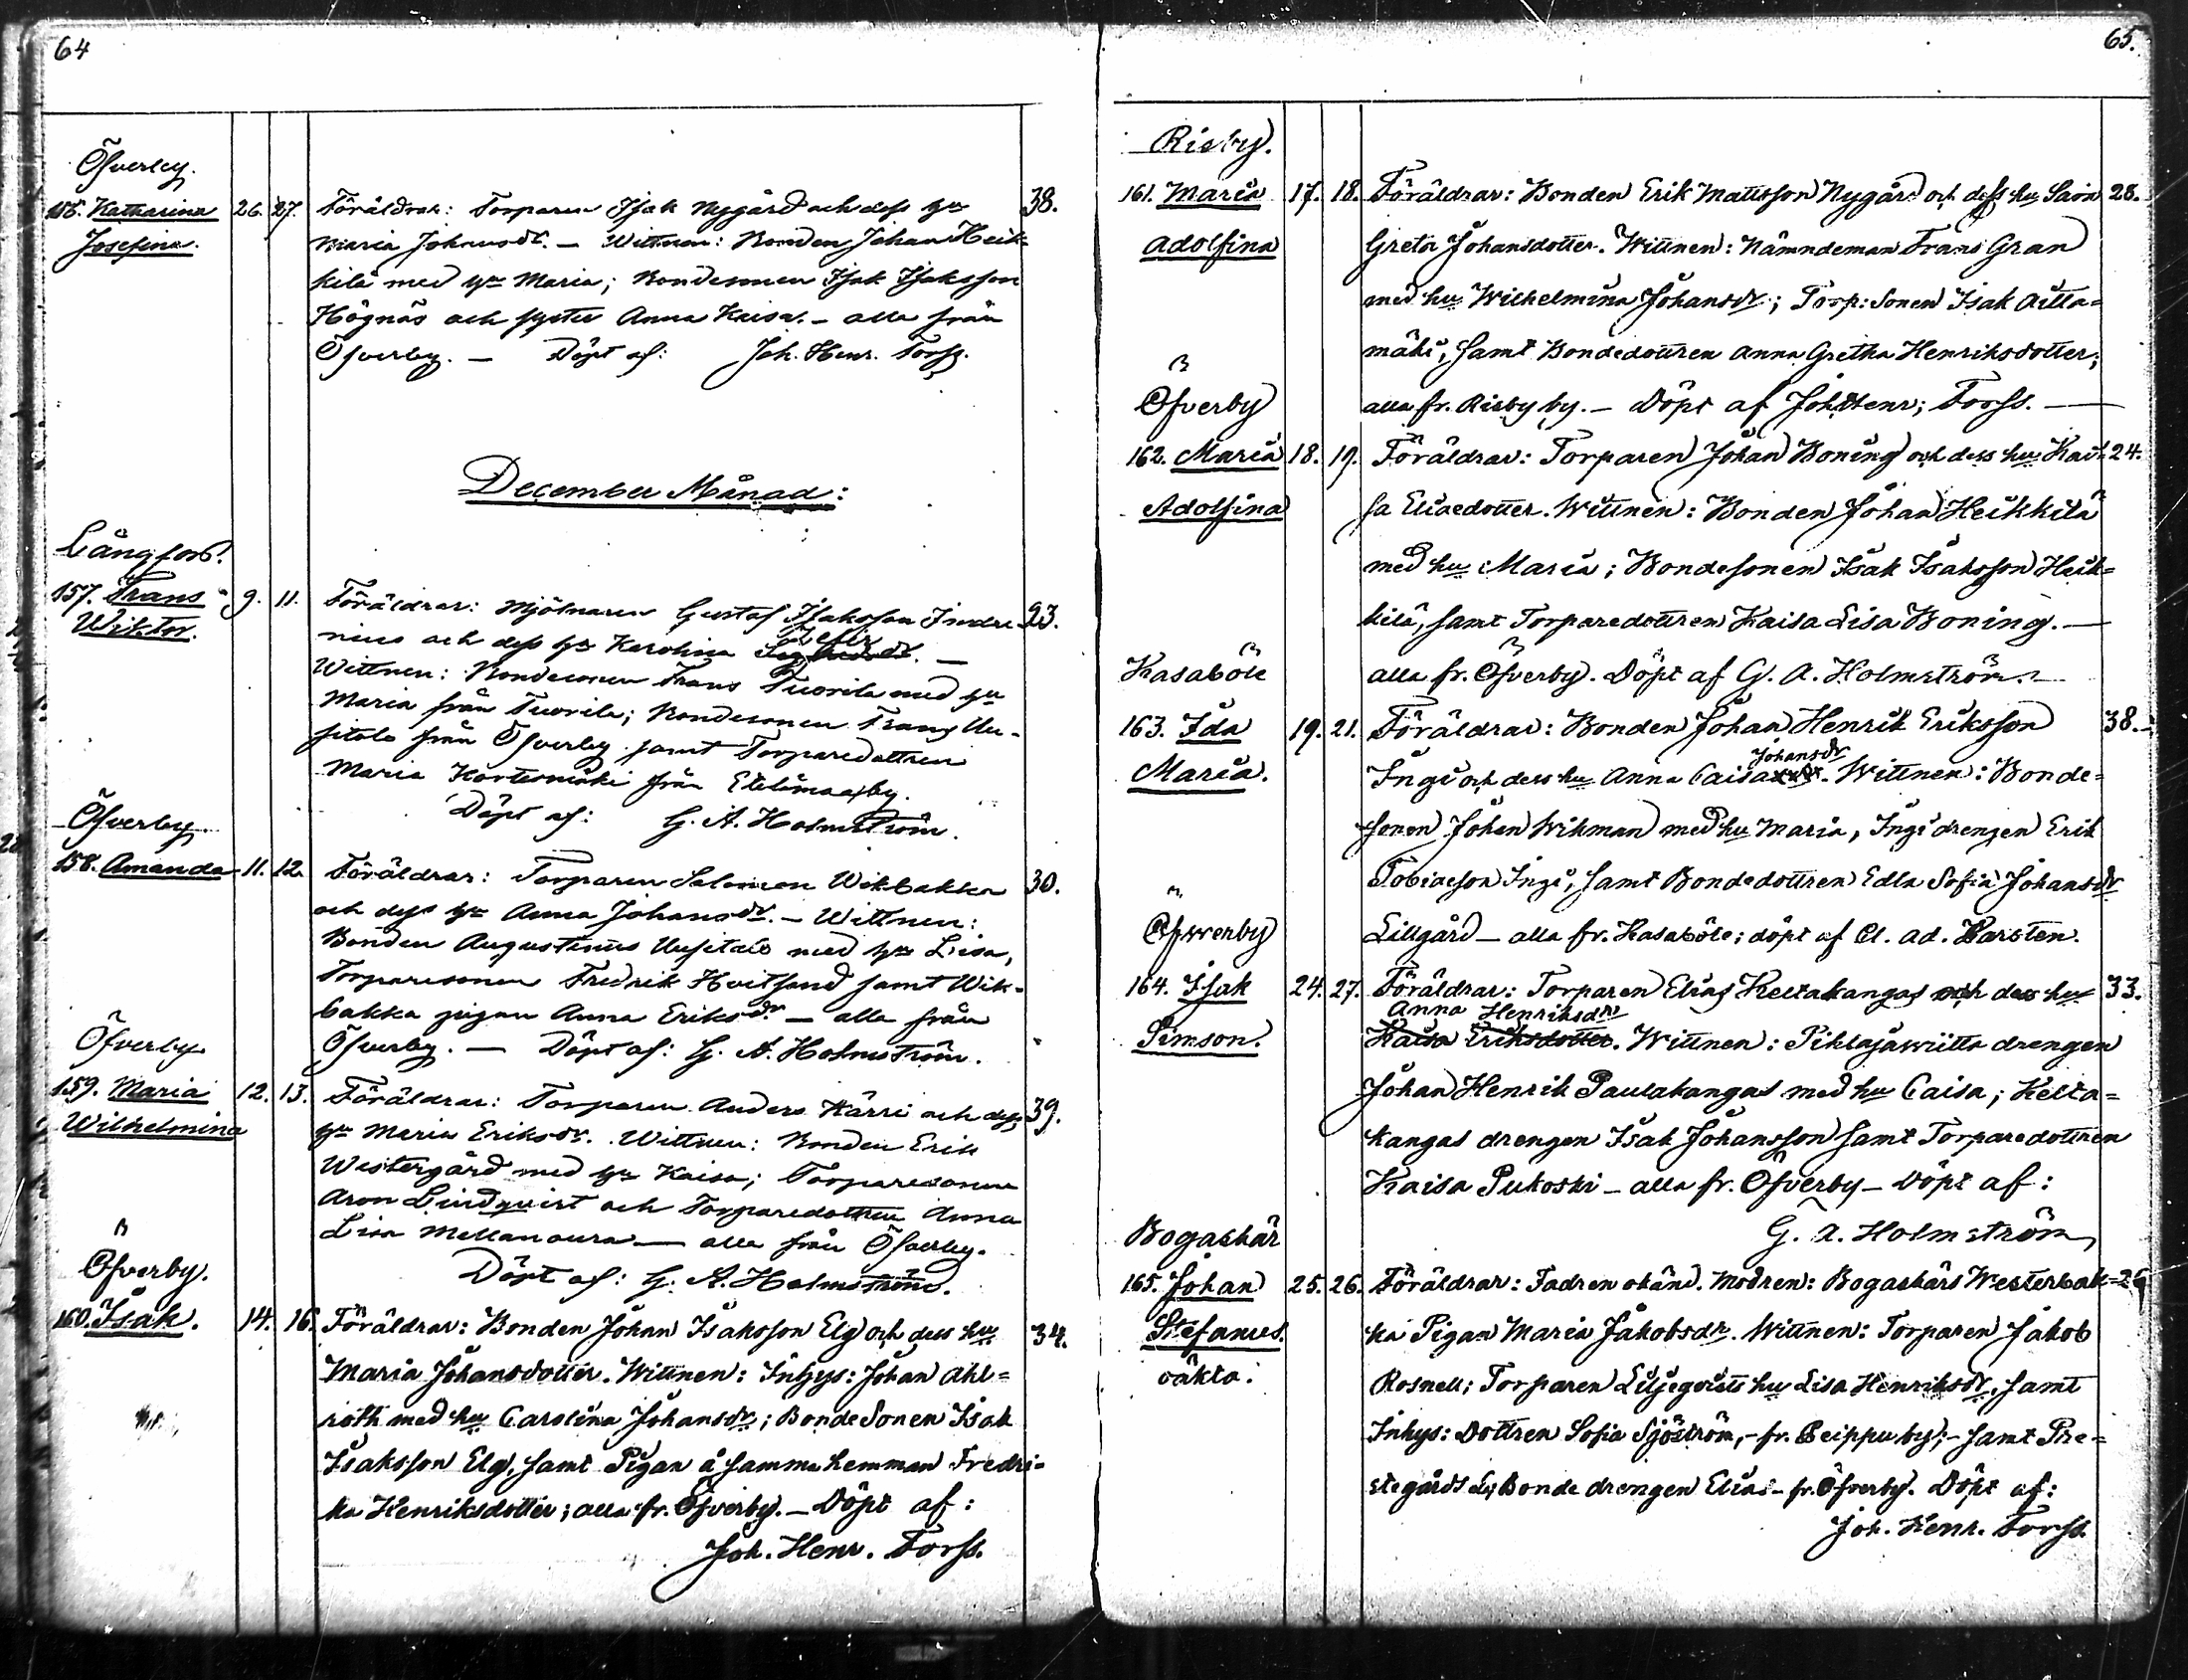 64
Öfverby.
156. Katharina 26. 27. Föräldrar: Torparen Isak Nygård och dess hu 38.
Josefina. Maria Johansdr. — Wittnen: Bonden Johan Heik-
kilä med hu Maria; Bondesonen Isak Isaksson
Högnäs och syster Anna Kaisa. — alla från
Öfverby. — Döpt af: Joh. Henr. Forss.
December Månad:
Långfors.
157. Frans 9. 11. Föräldrar: Mjölnaren Gustaf Isaksson 23.
Wiktor. och dess hu Karolina
Wittnen: Bondesonen Frans Tuorila med hu
Maria från Tuorila; Bondesonen Frans Uu-
sitalo från Öfverby samt Torparedottren
Maria Kortesmäki från Etelämaaby.
Döpt af: G. A. Holmström.
Öfverby.
158. Amanda 11. 12. Föräldrar: Torparen Salomon Wikbakka 30.
och dess hu Anna Johansdr. — Wittnen:
Bonden Augustinus Uusitalo med hu Lisa,
Torparesonen Fredrik Hvitsand samt Wik-
bakka pigan Anna Eriksdr. — alla från
Öfverby. — Döpt af: G. A. Holmström.
Öfverby
159. Maria 12. 13. Föräldrar: Torparen Anders Kärri och dess 39.
Wilhelmina hu Maria Eriksdr. Wittnen: Bonden Erik
Westergård med hu Kaisa; Torparesonen
Aron Lindqvist och Torparedottren Anna
Lisa Mellanoura — alla från Öfverby.
Döpt af: G. A. Holmström.
Öfverby.
160. Isak. 14. 16. Föräldrar: Bonden Johan Isaksson Elg och dess hu 34.
Maria Johansdotter. Wittnen: Inhys: Johan Ahl=
roth med hu Carolina Johansdr; BondeSonen Isak
Isaksson Elg, samt Pigan å samma hemman Fredri=
ka Henriksdotter; alla fr. Öfverby. — Döpt af:
Joh. Henr. Forss.
65.
Risby.
161. Maria 17. 18. Föräldrar: Bonden Erik Mattsson Nygård och dess hu 28.
Adolfina Greta Johansdotter. Wittnen: Nämndeman Frans Gran
med hu Wilhelmina Johansdr; Torp: Sonen Isak Aitta=
mäki, samt Bondedottren Anna Gretha Henriksdotter;
alla fr. Risby by. — Döpt af Joh. Henr; Forss. —
Öfverby
162. Maria 18. 19. Föräldrar: Torparen Johan Boning och dess hu Kai= 24.
Adolfina sa Eliaedotter. Wittnen: Bonden Johan Heikkilä
med hu Maria; Bondesonen Isak Isaksson Heik=
kilä, samt Torparedottren Kaisa Lisa Boning. —
alla fr. Öfverby. Döpt af G. A. Holmström. —
Kasaböle
163. Ida 19. 21. Föräldrar: Bonden Johan Henrik Eriksson 38.
Maria. Ingi och dess hu Anna Caisa Johansdr. Wittnen: Bonde=
sonen Johan Wikman med hu Maria, Ingi drengen Erik
Tobiaeson Ingi, samt Bondedottren Edla Sofia Johansdr
Lillgård — alla fr. Kasaböle; döpt af Cl. Ad. Karsten.
Öfwerby
164. Isak 24. 27. Föräldrar: Torparen Elias Keltakangas och dess hu 33.
Anna Henriksdr
Simson. Kaisa Eriksdotter. Wittnen: Pihlajawiitta drengen
Johan Henrik Paulakangas med hu Caisa; Kelta=
kangas drengen Isak Johansson samt Torparedottren
Kaisa Pukoski — alla fr. Öfverby — Döpt af:
G. A. Holmström
Bogaskär
165. Johan 25. 26. Föräldrar: Fadren okänd. Modren: Bogaskärs Westerbak=
Stefanus. ka Pigan Maria Jakobsdr. Wittnen: Torparen Jakob
oäkta. Rosnell; Torparen Liljeqvists hu Lisa Henriksdr, samt
Inhys: Dottren Sofia Sjöström, - fr. Peippu by; - samt Pre=
stegårds Bonde drengen Elias - fr. Öfverby. Döpt af:
Joh. Henr. Forss.